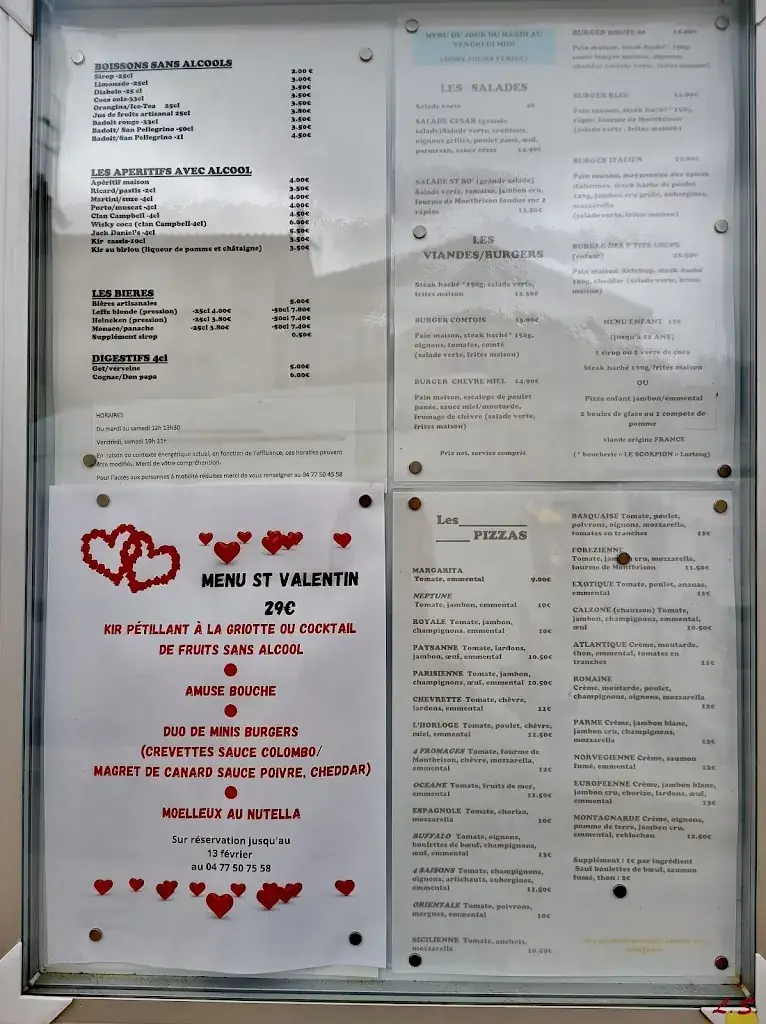 BOISSONS SANS ALCOOLS
Sirop -25cl 2.00 €
Limonade -25cl 3.00€
Diabolo -25 cl 3.50€
Coca cola-33cl 3.50€
Orangina/Ice-Tea 25cl 3.50€
Jus de fruits artisanal 25cl 3.80€
Badoit rouge -33cl 3.50€
Badoit/ San Pellegrino -50cl 3.50€
Badoit/ San Pellegrino -1l 4.50€
LES APERITIFS AVEC ALCOOL
Apéritif maison 4.00€
Ricard/pastis -2cl 3.50€
Martini/suze -4cl 4.00€
Porto/muscat -4cl 4.00€
Clan Campbell -4cl 4.50€
Wisky coca (clan Campbell-4cl) 6.00€
Jack Daniel's -4cl 5.50€
Kir cassis-10cl 3.50€
Kir au birlou (liqueur de pomme et châtaigne) 3.50€
LES BIERES
Bières artisanales 5.00€
Leffe blonde (pression) -25cl 4.00€ -50cl 7.80€
Heineken (pression) -25cl 3.80€ -50cl 7.40€
Monaco/panache -25cl 3.80€ -50cl 7.40€
Supplément sirop 0.50€
DIGESTIFS 4cl
Get/verveine 5.00€
Cognac/Don papa 6.00€
HORAIRES
Du mardi au samedi 12h 13h30
Vendredi, samedi 19h 21h
En raison du contexte énergétique actuel, en fonction de l'affluence, ces horaires peuvent
être modifiés. Merci de vôtre compréhension.
Pour l'accès aux personnes à mobilité réduites merci de vous renseigner au 04 77 50 45 58
MENU DU JOUR DU MARDI AU
VENDREDI MIDI
(HORS JOURS FERIES)
LES SALADES
Salade verte
SALADE CESAR (grande
salade)Salade verte, croutons,
oignons grilles, poulet pané, œuf,
parmesan, sauce césar 14.90€
SALADE ST BO' (grande salade)
Salade verte, tomates, jambon cru,
fourme de Montbrison fondue sur 2
râpées 13.50€
LES
VIANDES/BURGERS
Steak haché *150g, salade verte,
frites maison 12.50€
BURGER COMTOIS 13.90€
Pain maison, steak haché* 150g,
oignons, tomates, comté
(salade verte, frites maison)
BURGER CHEVRE MIEL 14.90€
Pain maison, escalope de poulet
panée, sauce miel/moutarde,
fromage de chèvre (salade verte,
frites maison)
Prix net, service compris
Pain maison, steak haché* 150g,
cheddar (salade verte, frites maison)
BURGER BLEU
Pain maison, steak haché*150g,
fourme de Montbrison
(salade verte, frites maison)
BURGER ITALIEN
Pain maison, mayonnaise aux épices
italiennes, steak haché de poulet
120g, jambon cru grillé, aubergines,
mozzarella
(salade verte, frites maison)
BURGER DES P'TITS LOUPS
(enfant) 10.50€
Pain maison, Ketchup, steak haché
100g, cheddar (salade verte, frites
maison)
MENU ENFANT 12€
(jusqu'à 12 ANS)
1 sirop ou 1 verre de coca
Steak haché 100g, frites maison
OU
Pizza enfant jambon/emmental
2 boules de glace ou 1 compote de
pomme
viande origine FRANCE
(* boucherie « LE SCORPION » Luriecq)
MENU ST VALENTIN
29€
KIR PÉTILLANT À LA GRIOTTE OU COCKTAIL
DE FRUITS SANS ALCOOL
AMUSE BOUCHE
DUO DE MINIS BURGERS
(CREVETTES SAUCE COLOMBO/
MAGRET DE CANARD SAUCE POIVRE, CHEDDAR)
MOELLEUX AU NUTELLA
Sur réservation jusqu'au
13 février
au 04 77 50 75 58
Les
PIZZAS
MARGARITA
Tomate, emmental 9.00€
NEPTUNE
Tomate, jambon, emmental 10€
ROYALE Tomate, jambon,
champignons, emmental 10€
PAYSANNE Tomate, lardons,
jambon, œuf, emmental 10.50€
PARISIENNE Tomate, jambon,
champignons, œuf, emmental 10.50€
CHEVRETTE Tomate, chèvre,
lardons, emmental 11€
L'HORLOGE Tomate, poulet, chèvre,
miel, emmental 11.50€
4 FROMAGES Tomate, fourme de
Montbrison, chèvre, mozzarella,
emmental 12€
OCEANE Tomate, fruits de mer,
emmental 11.50€
ESPAGNOLE Tomate, chorizo,
mozzarella 10€
BUFFALO Tomate, oignons,
boulettes de bœuf, champignons,
œuf, emmental 13€
4 SAISONS Tomate, champignons,
oignons, artichauts, aubergines,
emmental 11.50€
ORIENTALE Tomate, poivrons,
merguez, emmental 10€
SICILIENNE Tomate, anchois,
mozzarella 10.50€
BASQUAISE Tomate, poulet,
poivrons, oignons, mozzarella,
tomates en tranches 12€
FOREZIENNE
Tomate, jambon cru, mozzarella,
fourme de Montbrison 11.50€
EXOTIQUE Tomate, poulet, ananas,
emmental 11€
CALZONE (chausson) Tomate,
jambon, champignons, emmental,
œuf 10.50€
ATLANTIQUE Crème, moutarde,
thon, emmental, tomates en
tranches 11€
ROMAINE
Crème, moutarde, poulet,
champignons, oignons, mozzarella
12€
PARME Crème, jambon blanc,
jambon cru, champignons,
mozzarella 12€
NORVEGIENNE Crème, saumon
fumé, emmental 12€
EUROPEENNE Crème, jambon blanc,
jambon cru, chorizo, lardons, œuf,
emmental 13€
MONTAGNARDE Crème, oignons,
pomme de terre, jambon cru,
emmental, reblochon 12.50€
Supplément : 1€ par ingrédient
Sauf boulettes de bœuf, saumon
fumé, thon : 2€
L.S.